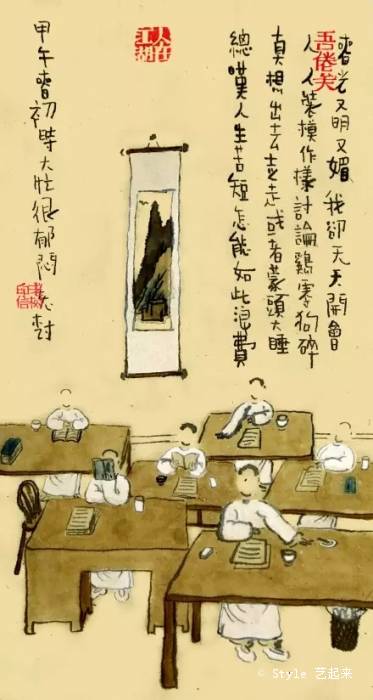 春光又明又媚 我卻天天開會
人人裝摸作樣討論雞零狗碎
真想出去走走或者蒙頭大睡
總嘆人生苦短怎能如此浪費
吾倦矣
人在江湖
甲午春初時大壯很郁悶 老樹
© Style 艺起来